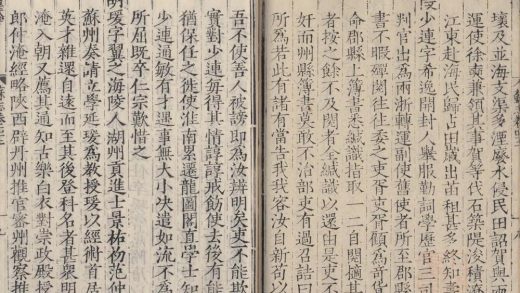 壞及並海支渠多湮廢水侵民田詔貫與兩
運使徐奭兼領其事貫等伐石築隄浚積潦
江東赴海民歸占田歲出苗租甚多終知壽
段少連字希逸開封人舉服勤詞學歷官三司
判官出爲兩浙轉運副使舊使者所至郡縣
書不暇殫閱往往委之吏胥吏胥爲奇貨
命郡縣上簿書緘識指取一二自閱擿其
者按之餘不及閱者全緘識以還由是吏不
奸而州縣簿書莫敢不治部吏有過召詰曰
所爲若此有諸有當告我我容汝自新苟以
吾不使善人被謗即爲汝辨明矣吏不能欺
實對少連每得其情諄諄戒飭使去後有能
猶保任之徙使淮南累遷龍圖閣直學士知
少連通敏有才遇事無大小决遣如流不爲
所屈既卒仁宗歎惜之
胡瑗字翼之海陵人湖州貢進士景祐初范仲
蘇州奏請立學延瑗爲教授瑗以經術首居
英才雜還自遠而至其後登科名者甚衆明
淹入朝又薦其通知古樂白衣對崇政殿授
郎仲淹經略陝西辟丹州推官審州觀察推